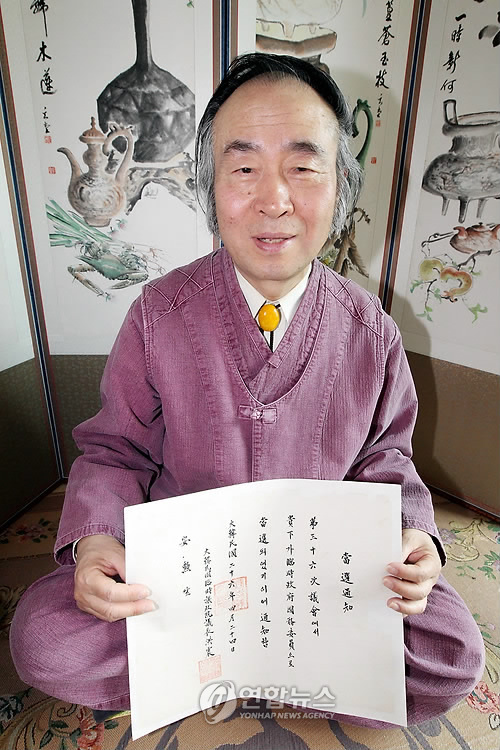 木蓮
蒼玉枝
一時新何
當選通知
第三十六次議會에서
貴下가臨時政府國務委員으로
當選되엿기이에通知함
大韓民國二十六年四月二十四日
大韓民國臨時議政院議長洪震
安·勳
연합뉴스
YONHAP NEWS AGENCY